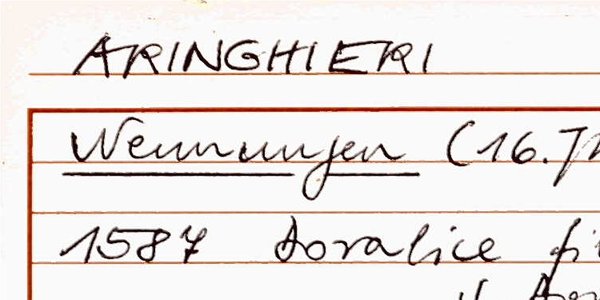 ARINGHIERI
Nennungen (16. Jh
1587 Doralice fi